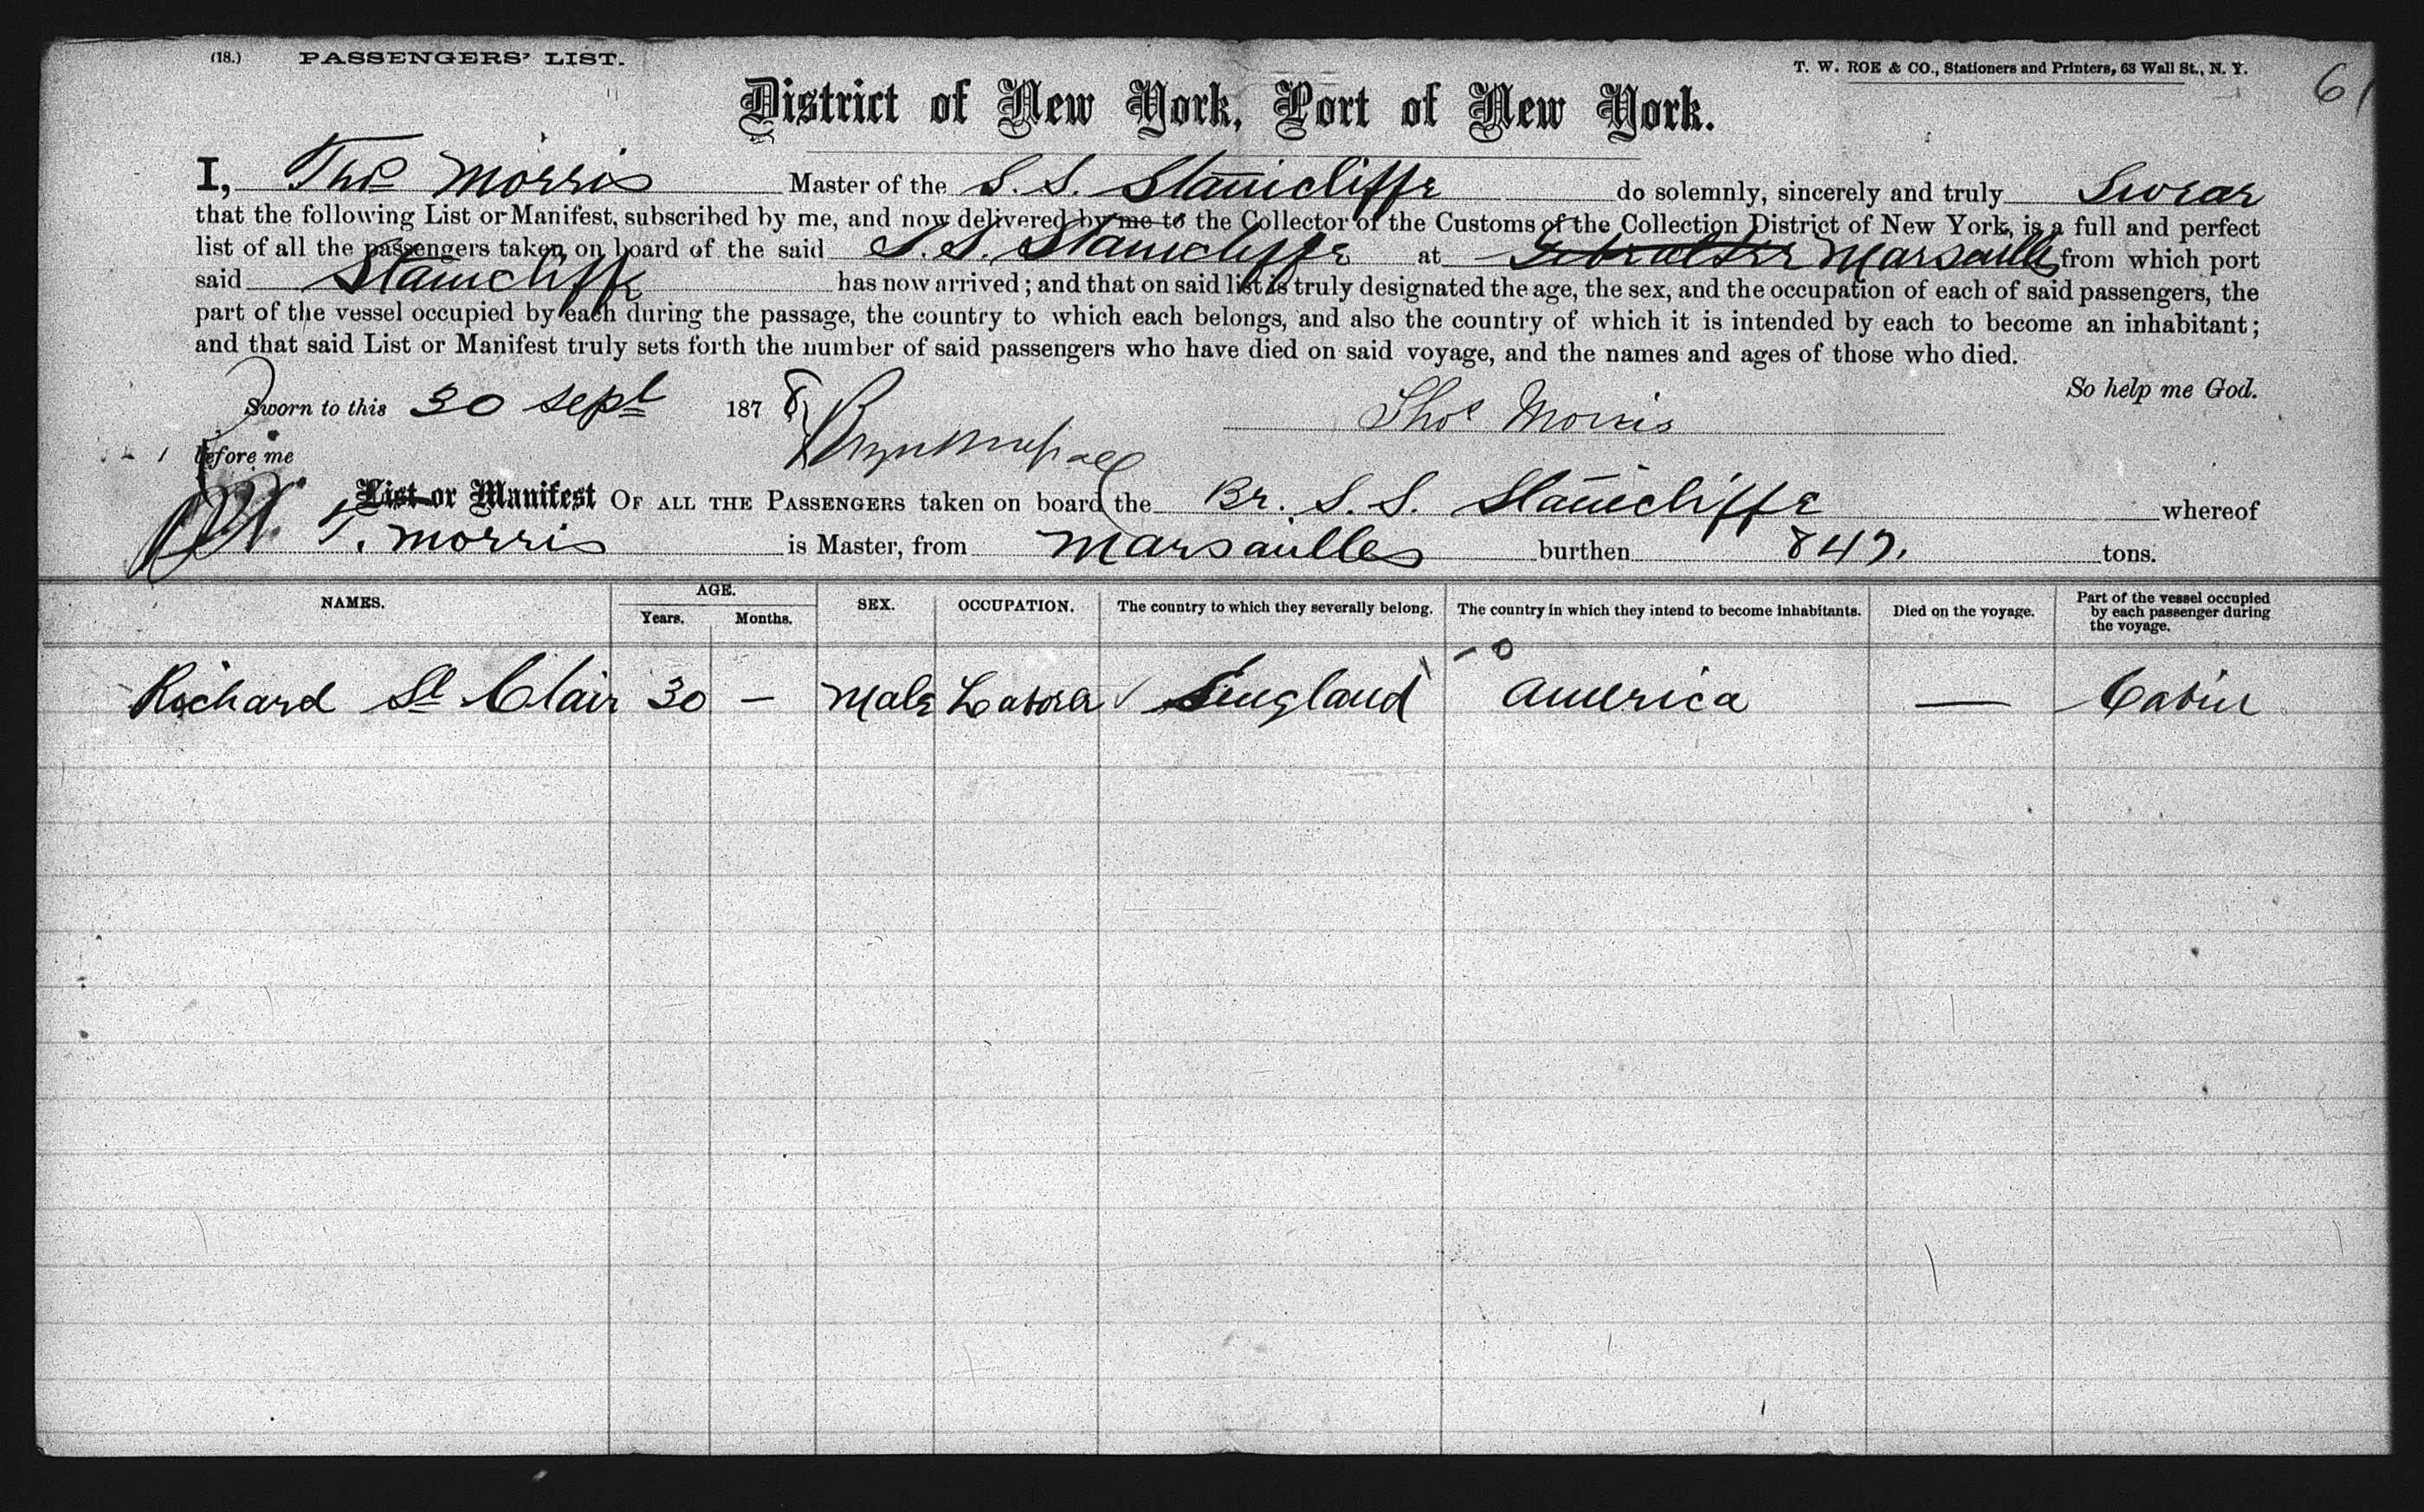 (18.) PASSENGERS' LIST. T. W. ROE & CO., Stationers and Printers, 63 Wall St., N. Y. 61
District of New York, Port of New York.
I, Thos Morris Master of the S. S. Stannicliffe do solemnly, sincerely and truly Swear
that the following List or Manifest, subscribed by me, and now delivered by me to the Collector of the Customs of the Collection District of New York, is a full and perfect
list of all the passengers taken on board of the said S. S. Stannicliffe at Gibralter Marsailles from which port
said Stannicliffe has now arrived; and that on said list is truly designated the age, the sex, and the occupation of each of said passengers, the
part of the vessel occupied by each during the passage, the country to which each belongs, and also the country of which it is intended by each to become an inhabitant;
and that said List or Manifest truly sets forth the number of said passengers who have died on said voyage, and the names and ages of those who died.
So help me God.
Sworn to this 30 Sept 1878 Thos Morris
before me
List or Manifest OF ALL THE PASSENGERS taken on board the Br. S. S. Stannicliffe whereof
T. Morris is Master, from Marsailles burthen 847. tons.
NAMES. AGE. Years. Months. SEX. OCCUPATION. The country to which they severally belong. The country in which they intend to become inhabitants. Died on the voyage. Part of the vessel occupied by each passenger during the voyage.
Richard St Clair 30 — Male Laborer England America — Cabin